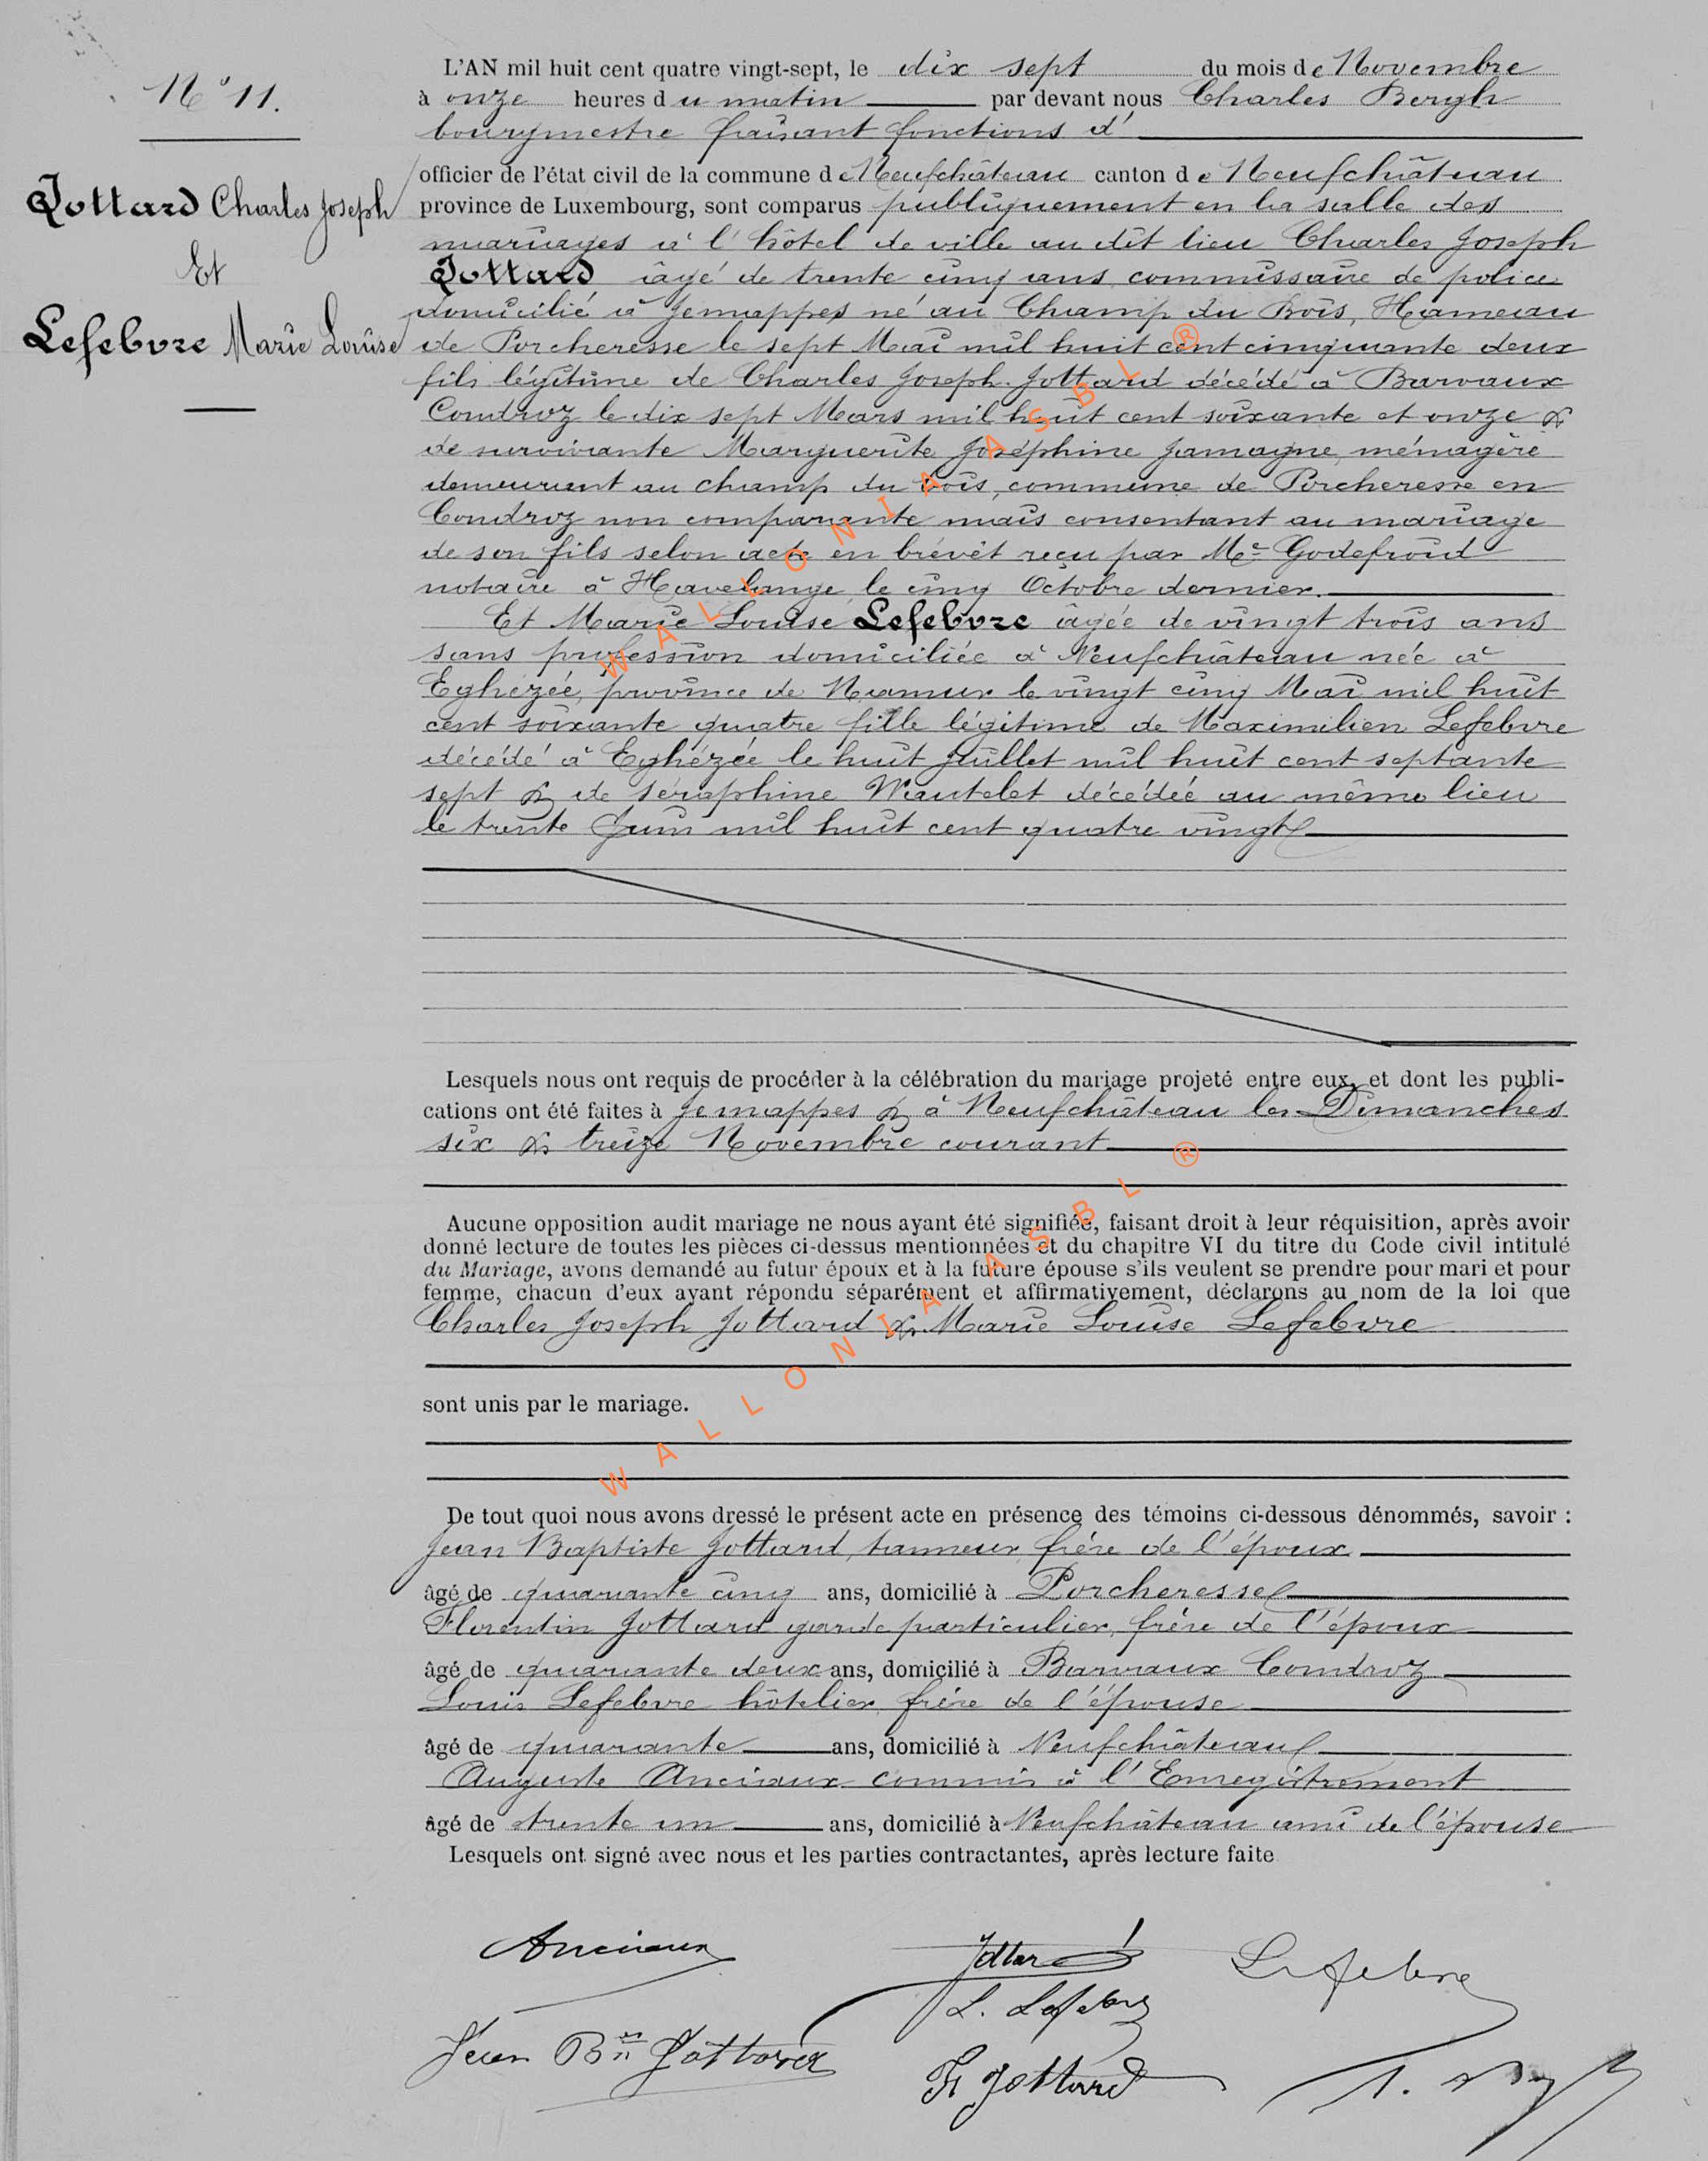 N° 11.
Jottard Charles Joseph
Et
Lefebvre Marie Louise
L'AN mil huit cent quatre vingt-sept, le dix sept du mois de Novembre
à onze heures du matin par devant nous Charles Bergh
bourgmestre faisant fonctions d'
officier de l'état civil de la commune de Neufchâteau canton de Neufchâteau
province de Luxembourg, sont comparus publiquement en la salle des
mariages à l'hôtel de ville au dit lieu Charles Joseph
Jottard âgé de trente cinq ans commissaire de police
domicilié à Jemappes né au Champ du Bois, Hameau
de Porcheresse le sept Mai mil huit cent cinquante deux
fils légitime de Charles Joseph Jottard décédé à Barvaux
Condroz le dix sept Mars mil huit cent soixante et onze &
de survivante Marguerite Joséphine Jamagne, ménagère
demeurant au champ du bois, commune de Porcheresse en
Condroz non comparante mais consentant au mariage
de son fils selon acte en brévèt reçu par Me Godefroid
notaire à Havelange le cinq Octobre dernier.
Et Marie Louise Lefebvre âgée de vingt trois ans
sans profession domiciliée à Neufchâteau née à
Eghezée, province de Namur le vingt cinq Mai mil huit
cent soixante quatre fille légitime de Maximilien Lefebvre
décédé à Eghézée le huit Juillet mil huit cent septante
sept & de Séraphine Wautelet décédée au même lieu
le trente Juin mil huit cent quatre vingt
Lesquels nous ont requis de procéder à la célébration du mariage projeté entre eux, et dont les publi-
cations ont été faites à Jemappes & à Neufchâteau les Dimanches
six & treize Novembre courant
Aucune opposition audit mariage ne nous ayant été signifiée, faisant droit à leur réquisition, après avoir
donné lecture de toutes les pièces ci-dessus mentionnées et du chapitre VI du titre du Code civil intitulé
du Mariage, avons demandé au futur époux et à la future épouse s'ils veulent se prendre pour mari et pour
femme, chacun d'eux ayant répondu séparément et affirmativement, déclarons au nom de la loi que
Charles Joseph Jottard & Marie Louise Lefebvre
sont unis par le mariage.
De tout quoi nous avons dressé le présent acte en présence des témoins ci-dessous dénommés, savoir :
Jean Baptiste Jottard, tanneur, frère de l'époux
âgé de quarante cinq ans, domicilié à Porcheresse
Florentin Jottard garde particulier, frère de l'époux
âgé de quarante deux ans, domicilié à Barvaux Condroz
Louis Lefebvre hôtelier, frère de l'épouse
âgé de quarante ans, domicilié à Neufchâteau
Auguste Anciaux commis à l'Enregistrement
âgé de trente un ans, domicilié à Neufchâteau ami de l'épouse
Lesquels ont signé avec nous et les parties contractantes, après lecture faite
Anciaux
Jottard
Lefebvre
L. Lefebvre
Jean Bte Jottard
Ft Jottard
WALLONIA ASBL ®
WALLONIA ASBL ®